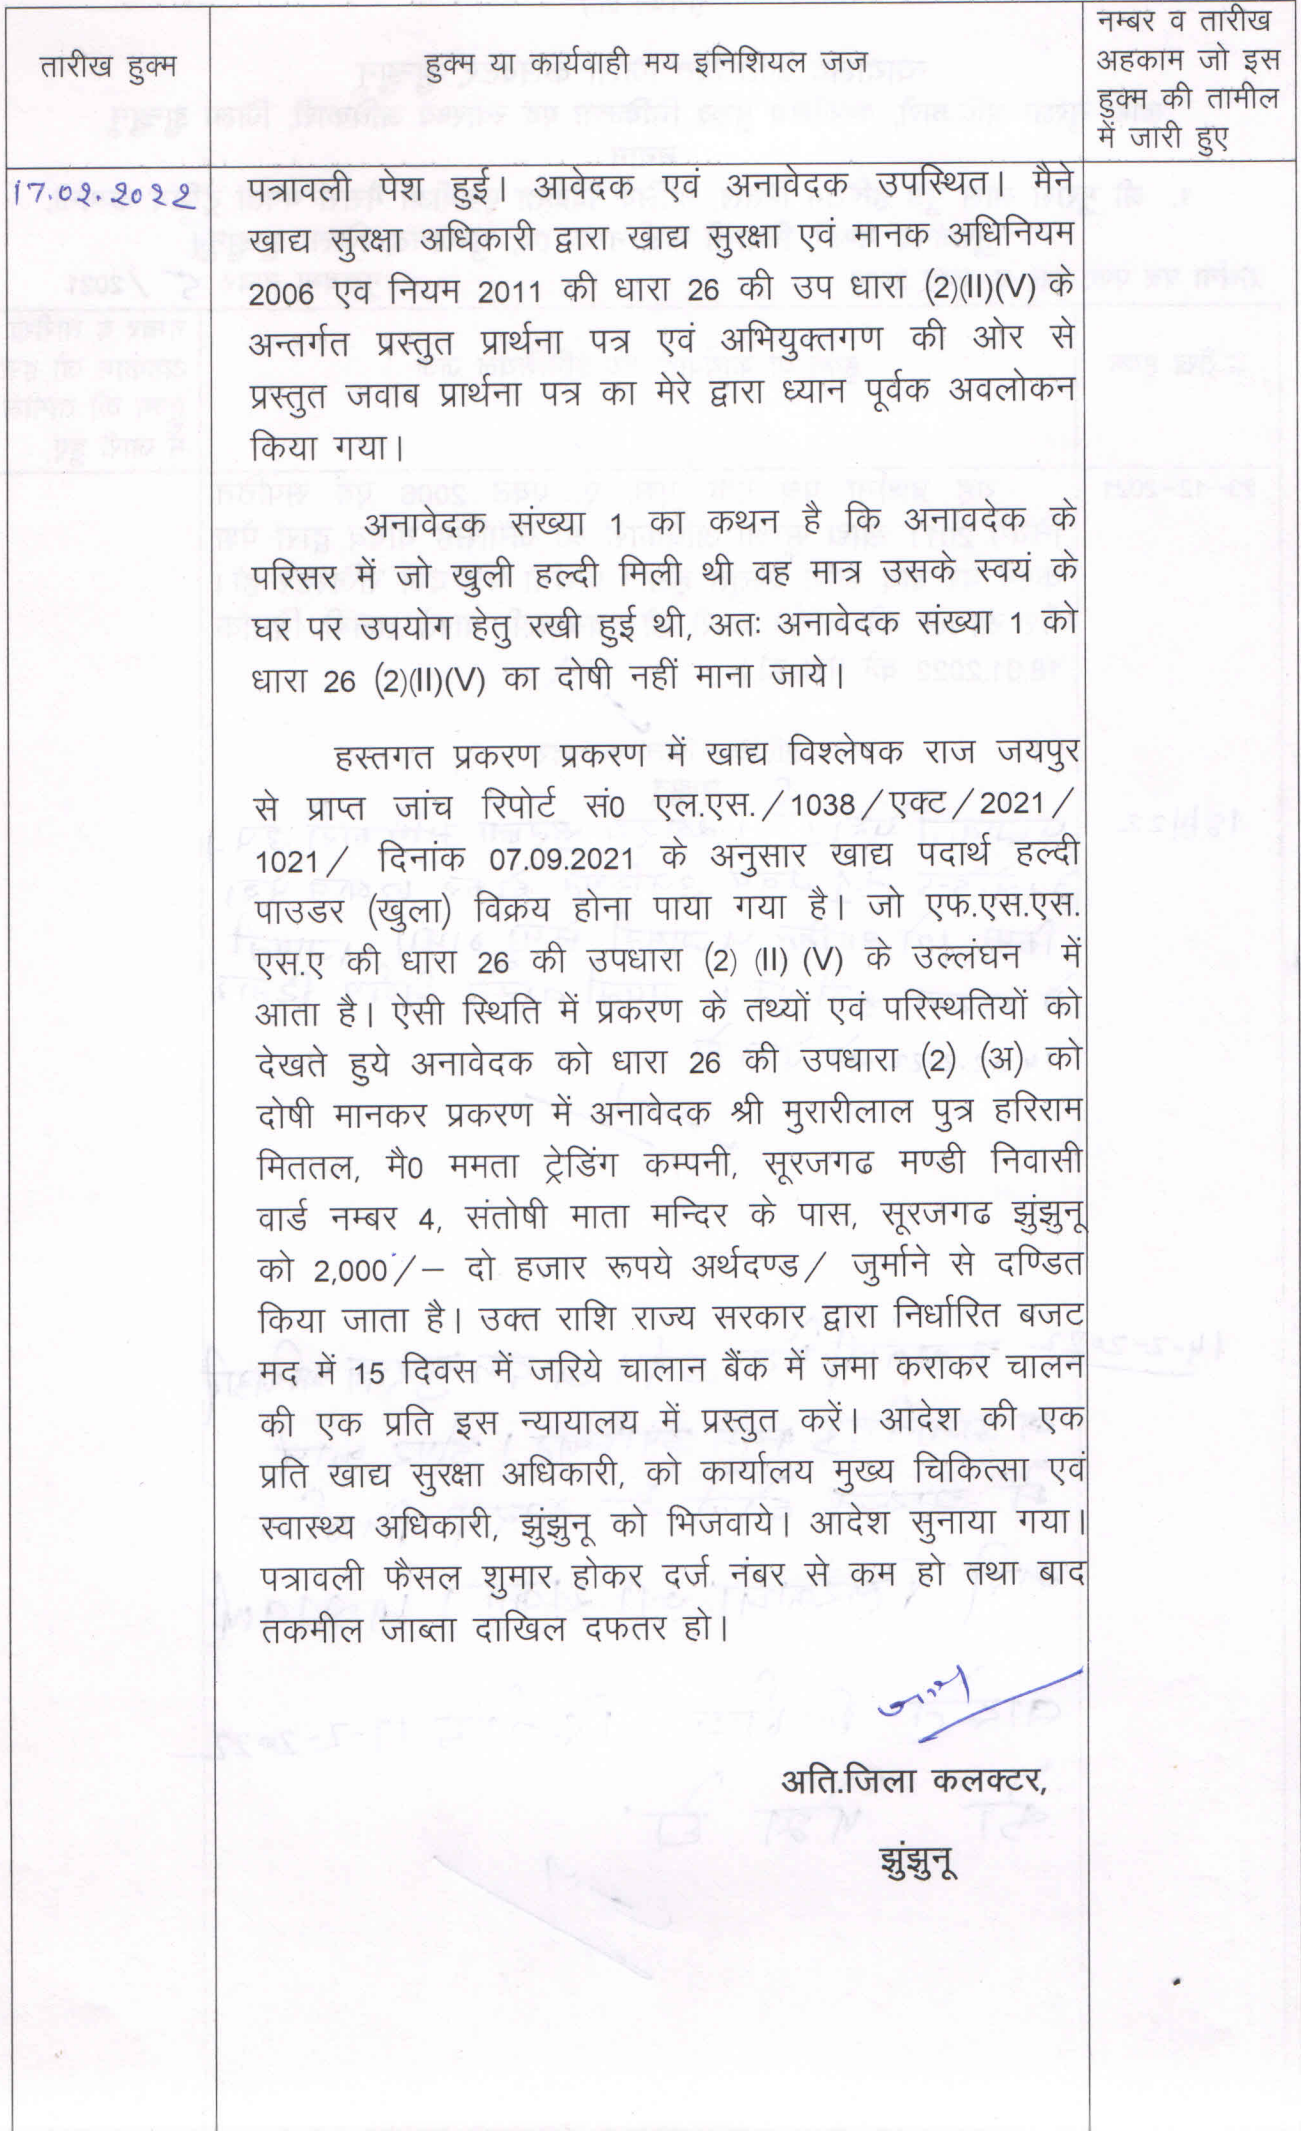 तारीख हुक्म
हुक्म या कार्यवाही मय इनिशियल जज
नम्बर व तारीख
अहकाम जो इस
हुक्म की तामील
में जारी हुए
17.02.2022
पत्रावली पेश हुई। आवेदक एवं अनावेदक उपस्थित। मैने
खाद्य सुरक्षा अधिकारी द्वारा खाद्य सुरक्षा एवं मानक अधिनियम
2006 एवं नियम 2011 की धारा 26 की उप धारा (2)(II)(V) के
अन्तर्गत प्रस्तुत प्रार्थना पत्र एवं अभियुक्तगण की ओर से
प्रस्तुत जवाब प्रार्थना पत्र का मेरे द्वारा ध्यान पूर्वक अवलोकन
किया गया।
अनावेदक संख्या 1 का कथन है कि अनावदेक के
परिसर में जो खुली हल्दी मिली थी वह मात्र उसके स्वयं के
घर पर उपयोग हेतु रखी हुई थी, अतः अनावेदक संख्या 1 को
धारा 26 (2)(II)(V) का दोषी नहीं माना जाये।
हस्तगत प्रकरण प्रकरण में खाद्य विश्लेषक राज जयपुर
से प्राप्त जांच रिपोर्ट सं0 एल.एस./1038/एक्ट/2021/
1021/ दिनांक 07.09.2021 के अनुसार खाद्य पदार्थ हल्दी
पाउडर (खुला) विक्रय होना पाया गया है। जो एफ.एस.एस.
एस.ए की धारा 26 की उपधारा (2) (II) (V) के उल्लघंन में
आता है। ऐसी स्थिति में प्रकरण के तथ्यों एवं परिस्थतियों को
देखते हुये अनावेदक को धारा 26 की उपधारा (2) (अ) को
दोषी मानकर प्रकरण में अनावेदक श्री मुरारीलाल पुत्र हरिराम
मिततल, मै0 ममता ट्रेडिंग कम्पनी, सूरजगढ मण्डी निवासी
वार्ड नम्बर 4, संतोषी माता मन्दिर के पास, सूरजगढ झुंझुनू
को 2,000/– दो हजार रूपये अर्थदण्ड/ जुर्माने से दण्डित
किया जाता है। उक्त राशि राज्य सरकार द्वारा निर्धारित बजट
मद में 15 दिवस में जरिये चालान बैंक में जमा कराकर चालन
की एक प्रति इस न्यायालय में प्रस्तुत करें। आदेश की एक
प्रति खाद्य सुरक्षा अधिकारी, को कार्यालय मुख्य चिकित्सा एवं
स्वास्थ्य अधिकारी, झुंझुनू को भिजवाये। आदेश सुनाया गया।
पत्रावली फैसल शुमार होकर दर्ज नंबर से कम हो तथा बाद
तकमील जाब्ता दाखिल दफतर हो।
अति.जिला कलक्टर,
झुंझुनू